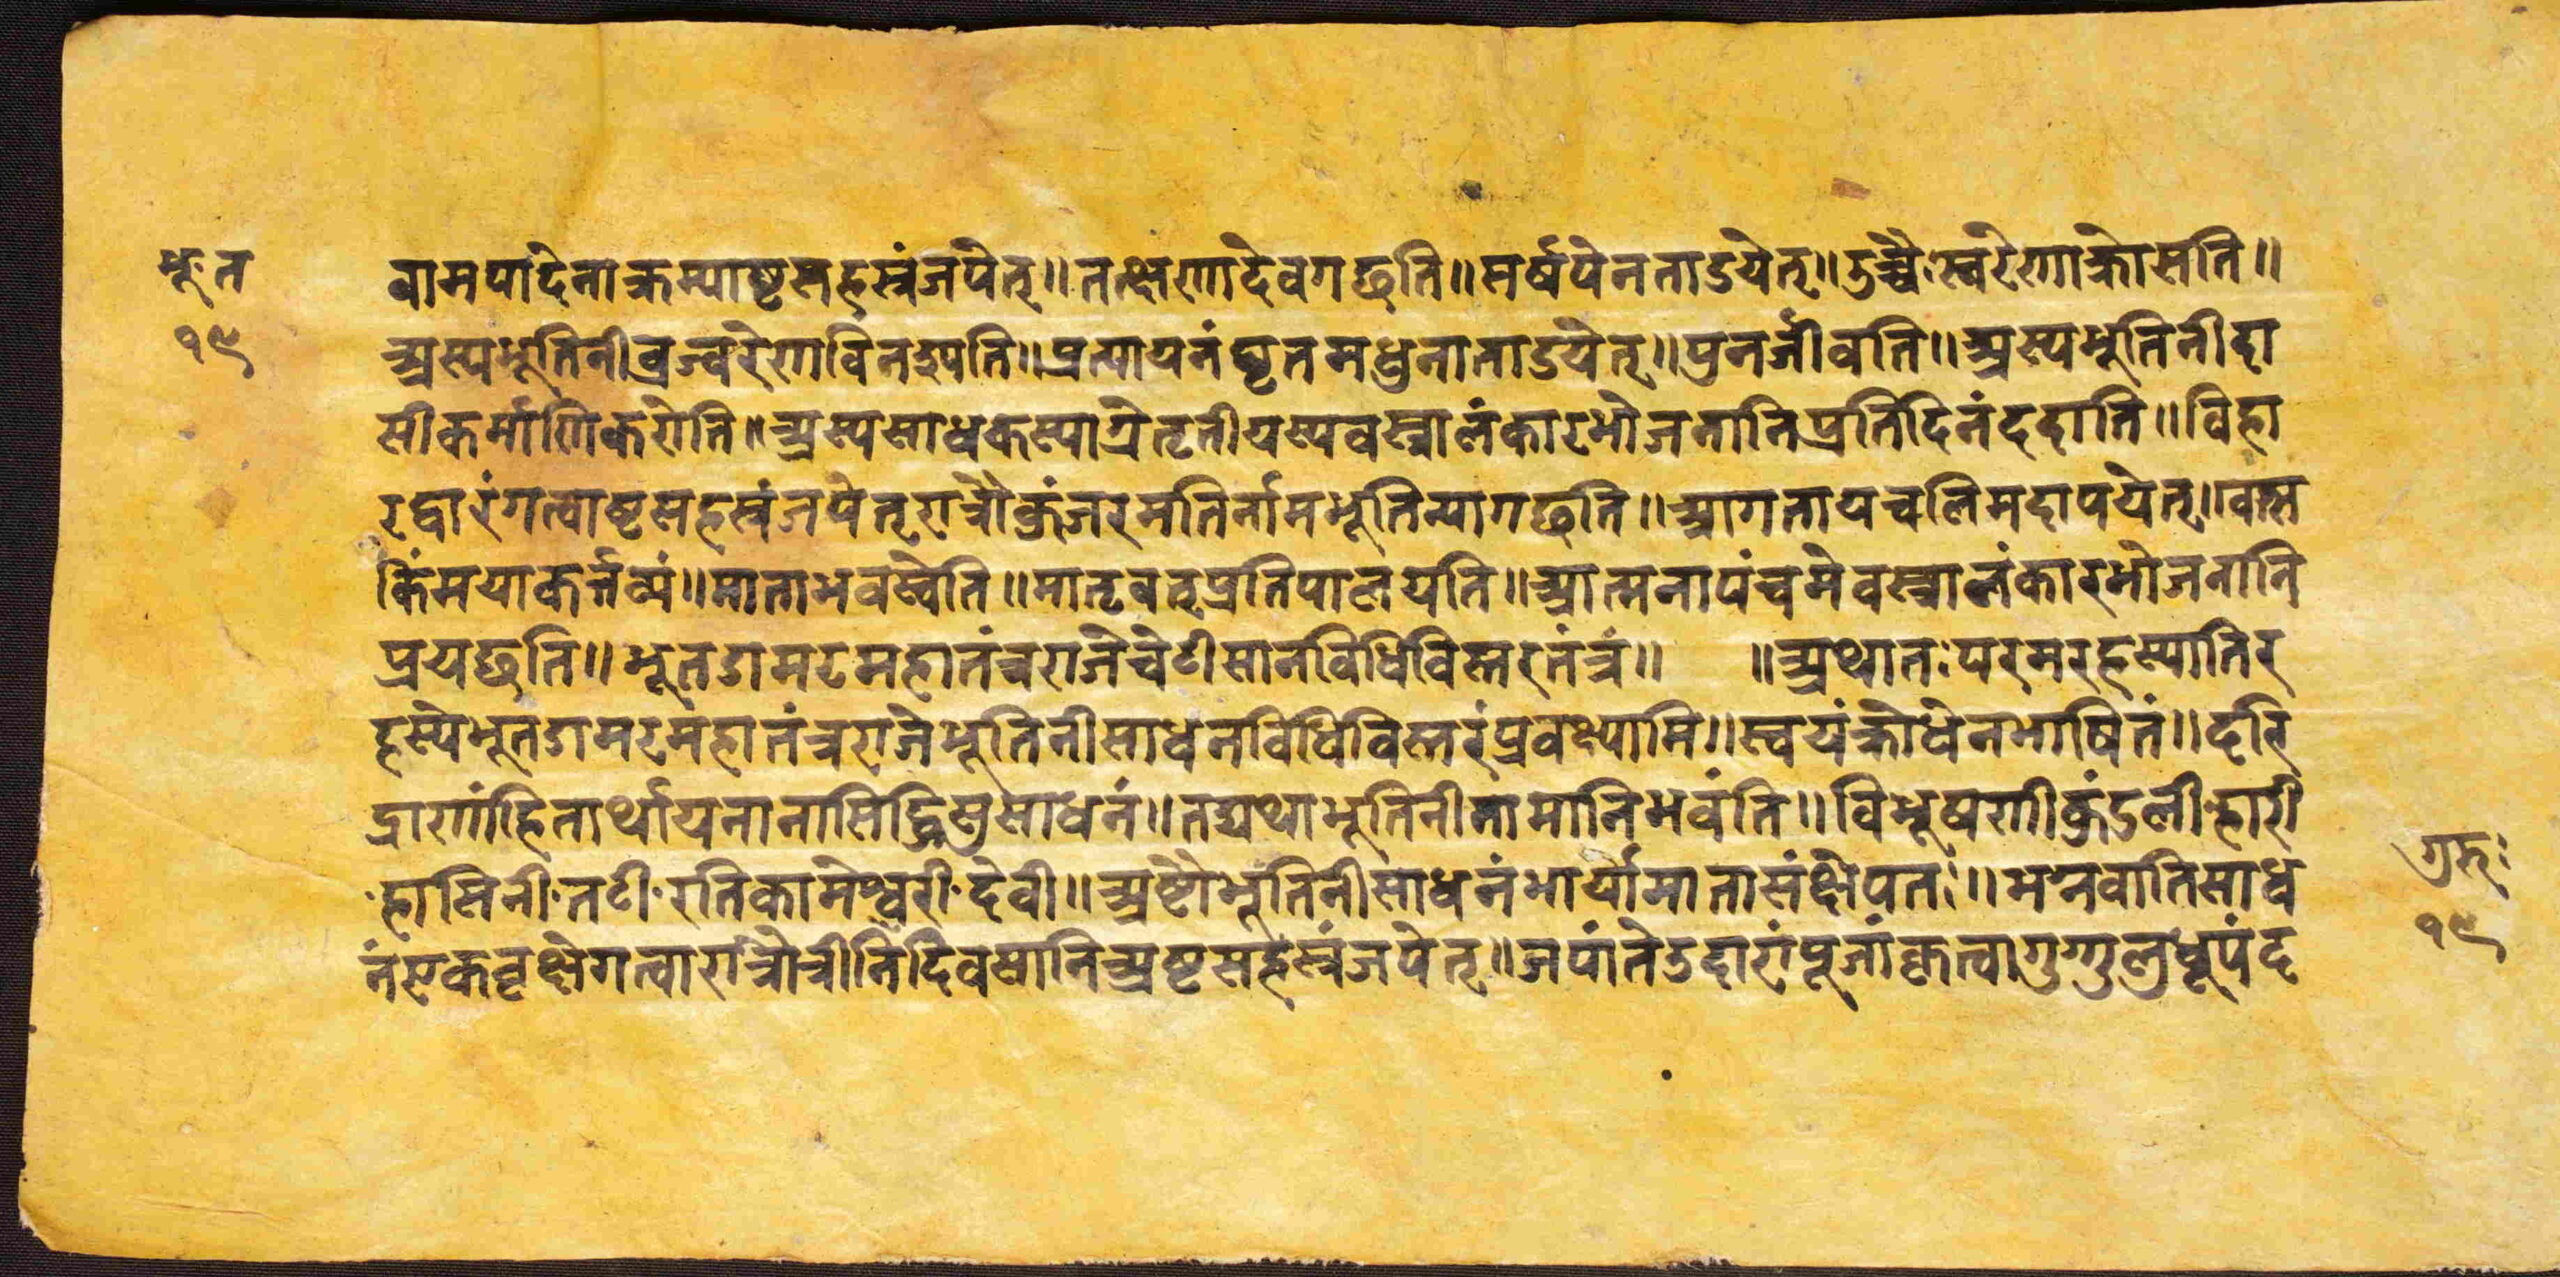 भूत
१९
वामपादेनाक्रम्याष्टसहस्रंजपेत्॥तत्क्षणादेवगछति॥सर्षपेनताडयेत्॥उच्चैःस्वरेणाक्रोसति॥
अस्यभूतिनीव्रज्वरेणविनश्यति॥प्रत्यायनंघृतमधुनाताडयेत्॥पुनर्जीवति॥अस्यभूतिनीदा
सीकर्माणिकरोति॥अस्यसाधकस्याग्रेतृतीयस्यवस्त्रालंकारभोजनानिप्रतिदिनंददाति॥विहा
रद्वारंगत्वाष्टसहस्रंजपेत्रात्रौकुंजरमतिर्नामभूतिन्यागछति॥आगतायचलिमदापयेत्॥वत्स
किंमयाकर्त्तव्यं॥माताभवस्वेति॥मातृवत्प्रतिपालयति॥आत्मनापंचमेवस्त्रालंकारभोजनानि
प्रयछति॥भूतडामरमहातंत्रराजेचेटीसानविधिविस्तरतंत्रं॥ ॥अथातःपरमरहस्यातिर
हस्येभूतडामरमहातंत्रराजेभूतिनीसाधनविधिविस्तरंप्रवक्ष्यामि॥स्वयंक्रोधेनभाषितं॥दरि
द्राणांहितार्थायनानासिद्धिसुसाधनं॥तद्यथाभूतिनीनामानिभवंति॥विभूषणीकुंडलीहारी
हासिनीनटीरतिकामेश्वरीदेवी॥अष्टौभूतिनीसाधनंभार्यामातासंक्षेपतः॥मग्नवातिसाध
नंएकवृक्षेगत्वारात्रौत्रीनिदिवसानिअष्टसहस्रंजपेत्॥जपांतेउदारांपूजांकृत्वागुग्गुलुधूपंद
१९